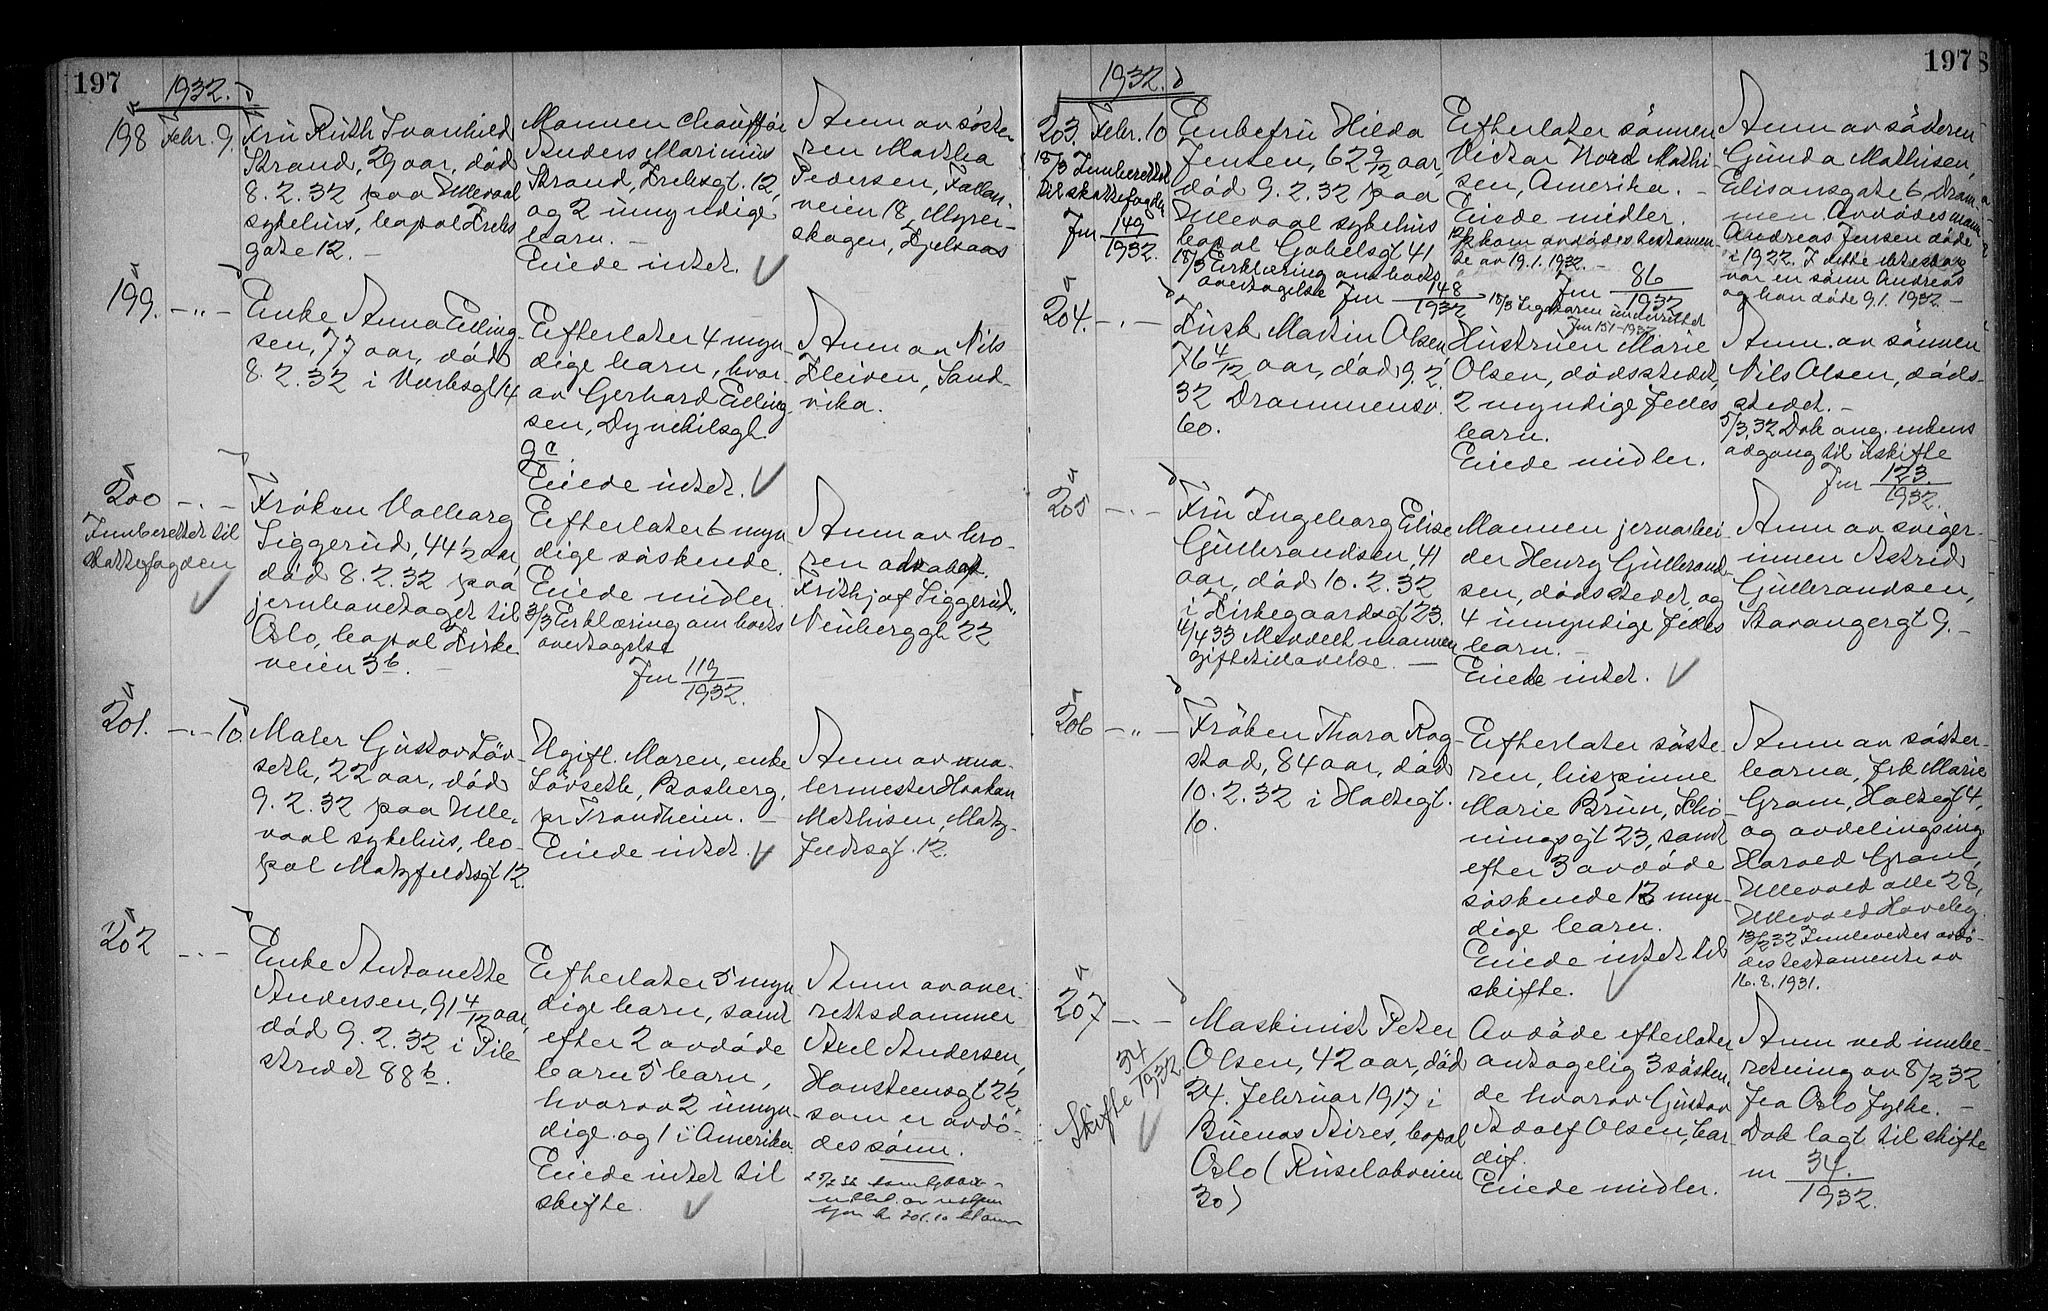 197
1932.
198 Febr. 9.
Fru Ruth Svanhild
Strand, 29 aar, død
8.2.32 paa Ullevaal
sykehus, bopal Krebs
gate 12. –
Mannen chauffør
Anders Marinius
Strand, Krebsgt. 12,
og 2 umyndige
barn. –
Eiede intet.
Anm av søste-
ren Martha
Pedersen,
veien 18, Myrer-
skogen, Kjelsaas
199. – " –
Enke Anna Elling-
sen, 77 aar, død
8.2.32 i Verksgt 14
Efterlater 4 myn-
dige barn, hvor-
av Gerhard Elling-
sen, Dynekilsgt.
9c
Eiede intet.
Anm av Nils
Kleiven, Sand-
vika.
200 – " –
Innberettet til
skattefogden
Frøken Valborg
Siggerud, 44 1/2 aar,
død 8.2.32 paa
jernbanetoget til
Oslo, bopal Kirke-
veien 3b. –
Efterlater 6 myn-
dige søskende.
Eiede midler.
3/3 Erklæring om boets
overtagelse
Jnr 119/1932.
Anm av bro-
ren advokat
Frithjof Siggerud,
Neuberggt 22
201. – " – 10.
Maler Gustav Løv-
seth, 22 aar, død
9.2.32 paa Ulle-
vaal sykehus, bo-
pal Matzfeldtsgt 12.
Ugift. Moren, enke
Løvseth, Bosberg,
pr Trondheim. –
Eiede intet.
Anm av ma-
lermester Haakon
Mathisen, Matz-
feldtsgt. 12.
202 – " –
Enke Antonette
Andersen, 91 4/12 aar,
død 9.2.32 i Pile-
stredet 88b.
Efterlater 5 myn-
dige barn, samt
efter 2 avdøde
barn 5 barn,
hvorav 2 umyn-
dige og 1 i Amerika.
Eiede intet til
skifte.
Anm av over-
rettsdommer
Axel Andersen,
Hansteensgt 22,
som er avdø-
des sønn.
197
8
1932.
203. Febr. 10
18/3 Innberettet
til skattefogden
Jnr 149/1932.
Enkefru Hilda
Jensen, 62 9/12 aar,
død 9.2.32 paa
Ullevaal sykehus
bopal Gabelsgt 41
18/3 Erklæring om boets
overtagelse Jnr 148/1932
Efterlater sønnen
Victor Nord Mathi-
sen, Amerika. –
Eiede midler.
12/2 kom avdødes testamen-
te av 19.1.1932. –
Jnr 86/1932
18/3 Legataren underrettet
Jnr 151-1932
Anm av søsteren
Gunda Mathisen,
Elisonsgate 6, Dram-
men. Avdødes mann
Andreas Jensen døde
i 1922. I dette ekteskap
var en sønn Andreas
og han døde 9.1.1932. –
204. – " –
Kusk Martin Olsen
76 4/12 aar, død 9.2.
32 Drammensv.
60.
Hustruen Marie
Olsen, dødsstedet,
2 myndige felles
barn.
Eiede midler.
Anm. av sønnen
Nils Olsen, døds-
stedet. –
5/3.32 Dok ang. enkens
adgang til uskifte
Jnr 123/1932.
205 – " –
Fru Ingeborg Elise
Gulbrandsen, 41
aar, død 10.2.32
i Kirkegaardsgt 23.
4/4 33 Meddelt mannen
giftetilladelse. –
Mannen jernarbei-
der Henry Gulbrand-
sen, dødsstedet, og
4 umyndige felles
barn. –
Eiede intet.
Anm av sviger-
innen Astrid
Gulbrandsen,
Stavangergt 9. –
206 – " –
Frøken Thora Rog-
stad, 84 aar, død
10.2.32 i Holtegt.
10.
Efterlater søste-
ren, lærerinne
Marie Brun, Schø-
ningsgt 23, samt
efter 3 avdøde
søskende 12 myn-
dige barn.
Eiede intet til
skifte.
Anm av søster-
barna, frk Marie
Gram, Holtegt 4,
og avdelingsing.
Harald Gram,
Ullevold alle 28,
Ullevold Haveby.
13/2 32 Innleveredes avdø-
des testamente av
16.8.1931.
207 – " –
Skifte 34/1932.
Maskinist Peter
Olsen, 42 aar, død
24. februar 1917 i
Buenos Aires, bopal
Oslo (Ruseløkveien
30)
Avdøde efterlater
antagelig 3 søsken-
de hvorav Gustav
Adolf Olsen, Car-
dif.
Eiede midler.
Anm ved innbe-
retning av 8/2 32
fra Oslo fylke. –
Dok lagt til skifte
nr 34./1932.